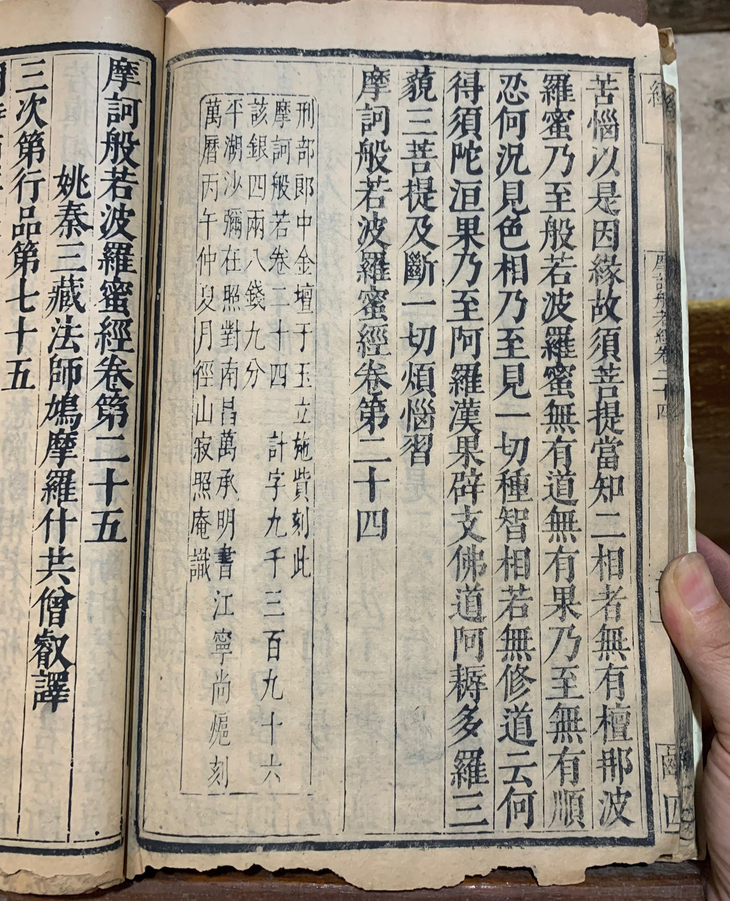 經
摩訶般若經卷二十四
四
苦惱以是因緣故須菩提當知二相者無有檀那波
羅蜜乃至般若波羅蜜無有道無有果乃至無有順
忍何況見色相乃至見一切種智相若無修道云何
得須陀洹果乃至阿羅漢果辟支佛道阿耨多羅三
藐三菩提及斷一切煩惱習
摩訶般若波羅蜜經卷第二十四
刑部郎中金壇于玉立施貲刻此
摩訶般若卷二十四 計字九千三百九十六
該銀四兩八錢九分
平湖沙彌在照對南昌萬承明書江寧尚熝刻
萬曆丙午仲夏月徑山寂照庵識
摩訶般若波羅蜜經卷第二十五
姚秦三藏法師鳩摩羅什共僧叡譯
三次第行品第七十五